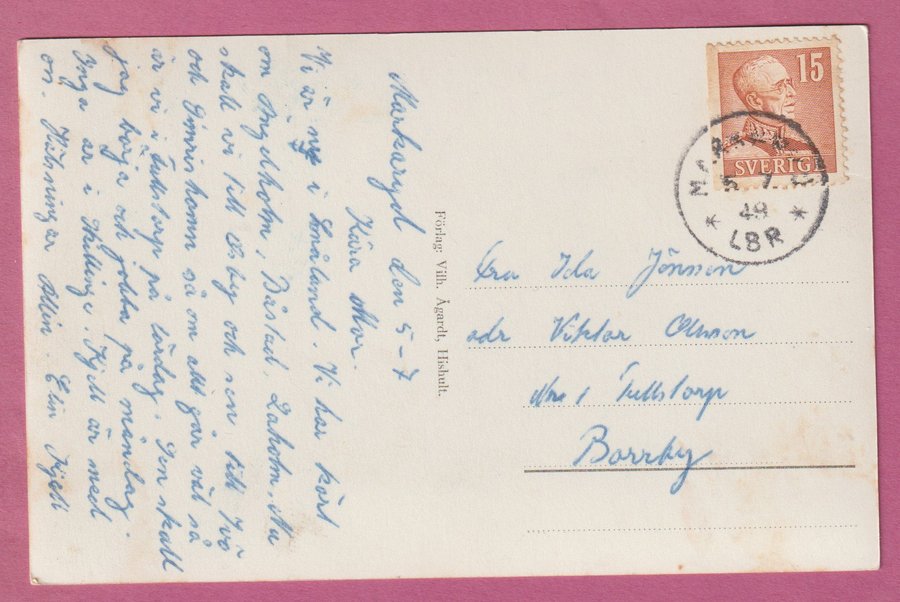 Markaryd den 5-7
Kära Mor.
Vi är nu i Småland. Vi har kört
om Ängelholm, Båstad, Laholm. Nu
skall vi till Osby och sen till Ivö
och Simrishamn så om allt går väl så
är vi i Tullstorp på lördag. Sen skall
jag börja och jobba på måndag.
Inga är i Skillinge. Kjell är med
oss. Hälsningar Allin. Elin Kjell
Förlag: Vilh. Ågardt, Hishult.
15
SVERIGE
MARKARYD
5 7
49
LBR
Fru Ida Jönsson
adr Viktor Olsson
No 1 Tullstorp
Borrby